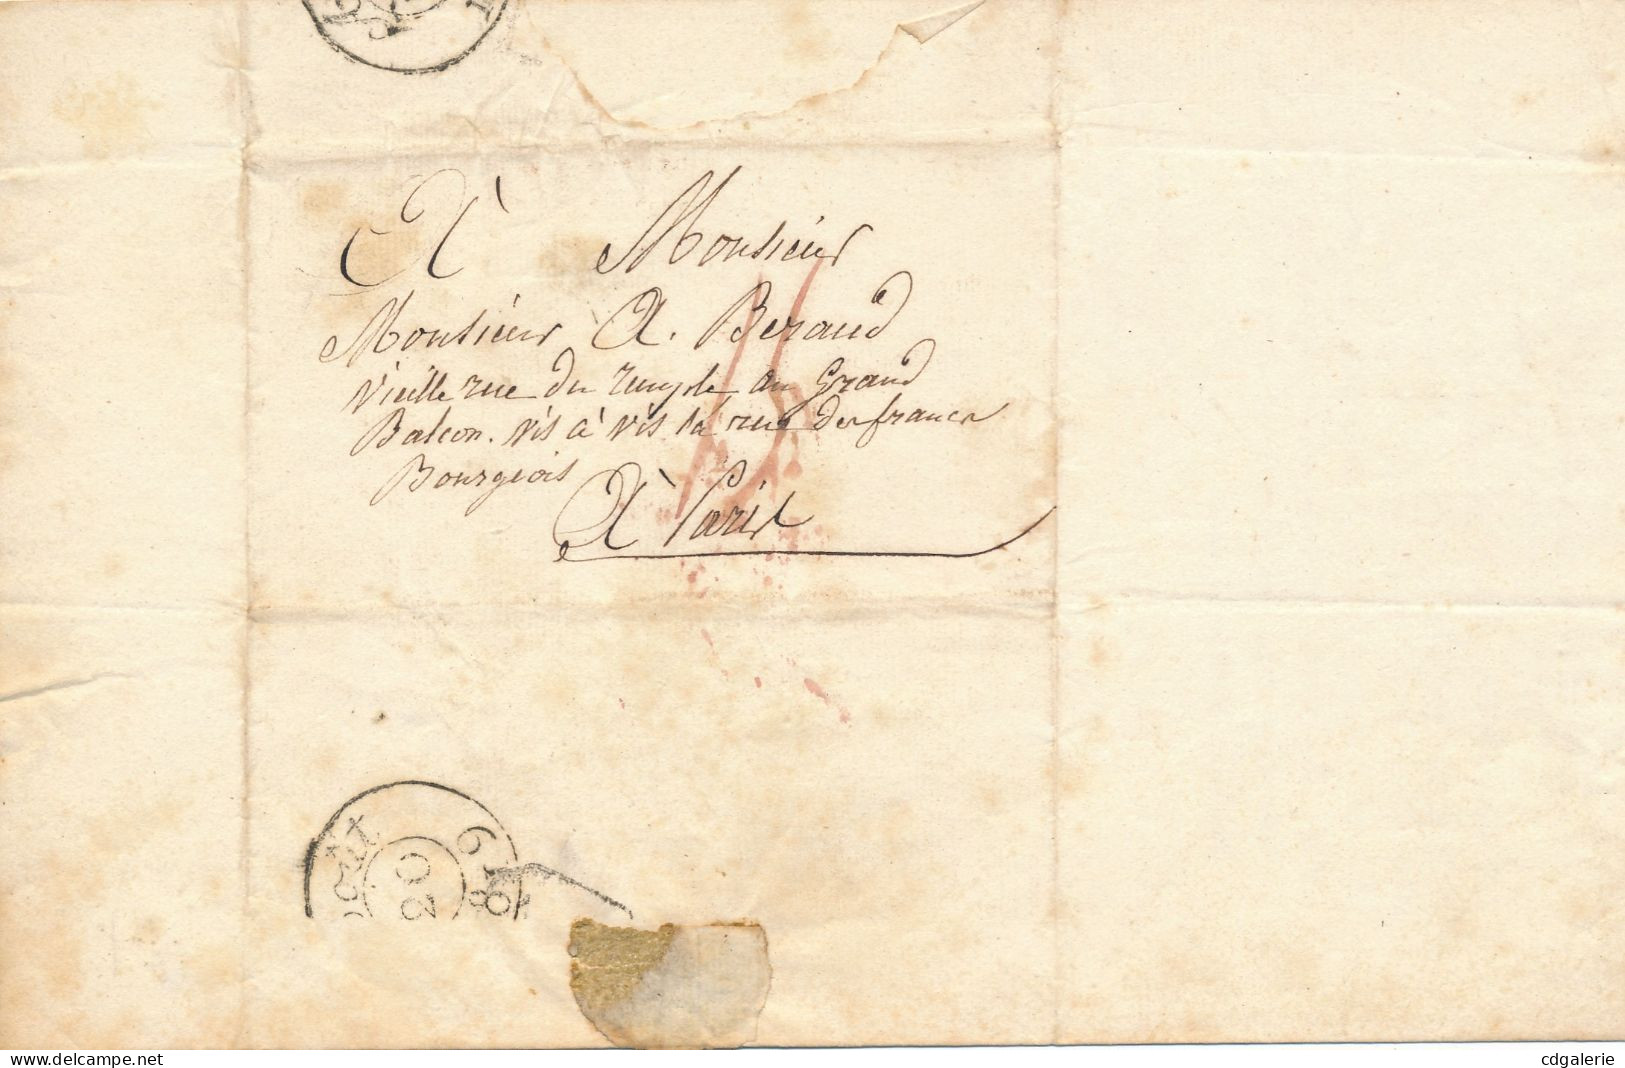 À Monsieur
Monsieur A. Beraud
Vieille rue du Temple au Grand
Balcon. vis à vis la rue des francs
Bourgeois
À Paris
15
1819
20
www.delcampe.net
cdgalerie